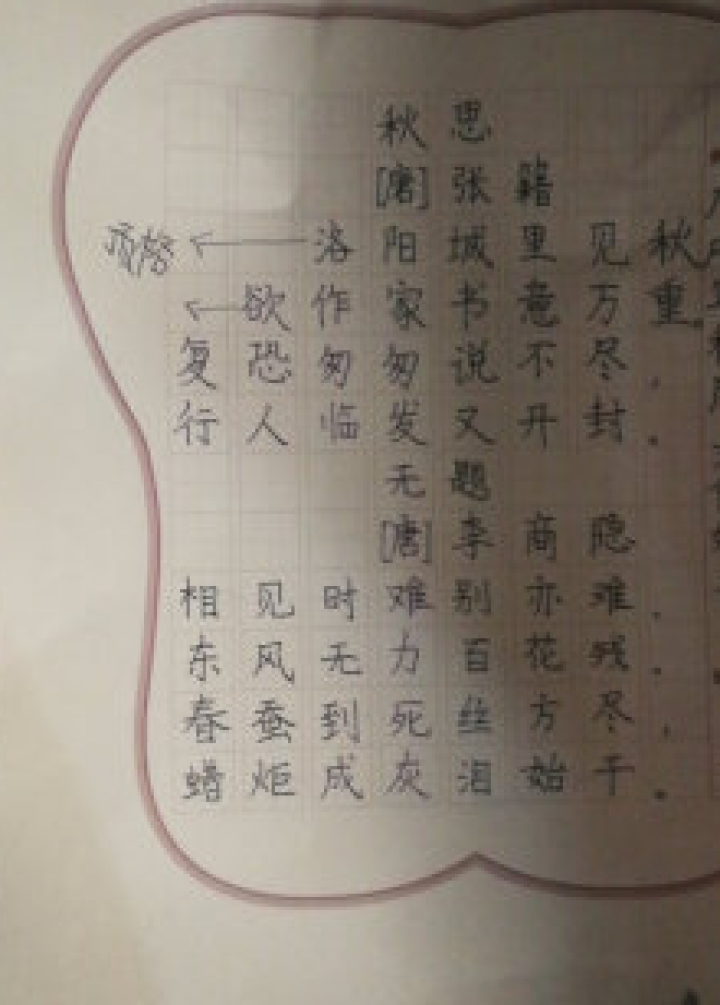 秋思
[唐]张籍
顶格 ← 洛阳城里见秋
← 欲作家书意万重。
复恐匆匆说不尽，
行人临发又开封。
无题
[唐]李商隐
相见时难别亦难，
东风无力百花残。
春蚕到死丝方尽，
蜡炬成灰泪始干。